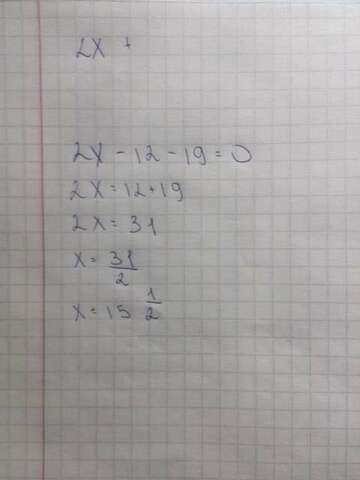 2x +
2x - 12 - 19 = 0
2x = 12 + 19
2x = 31
x = 31/2
x = 15 1/2